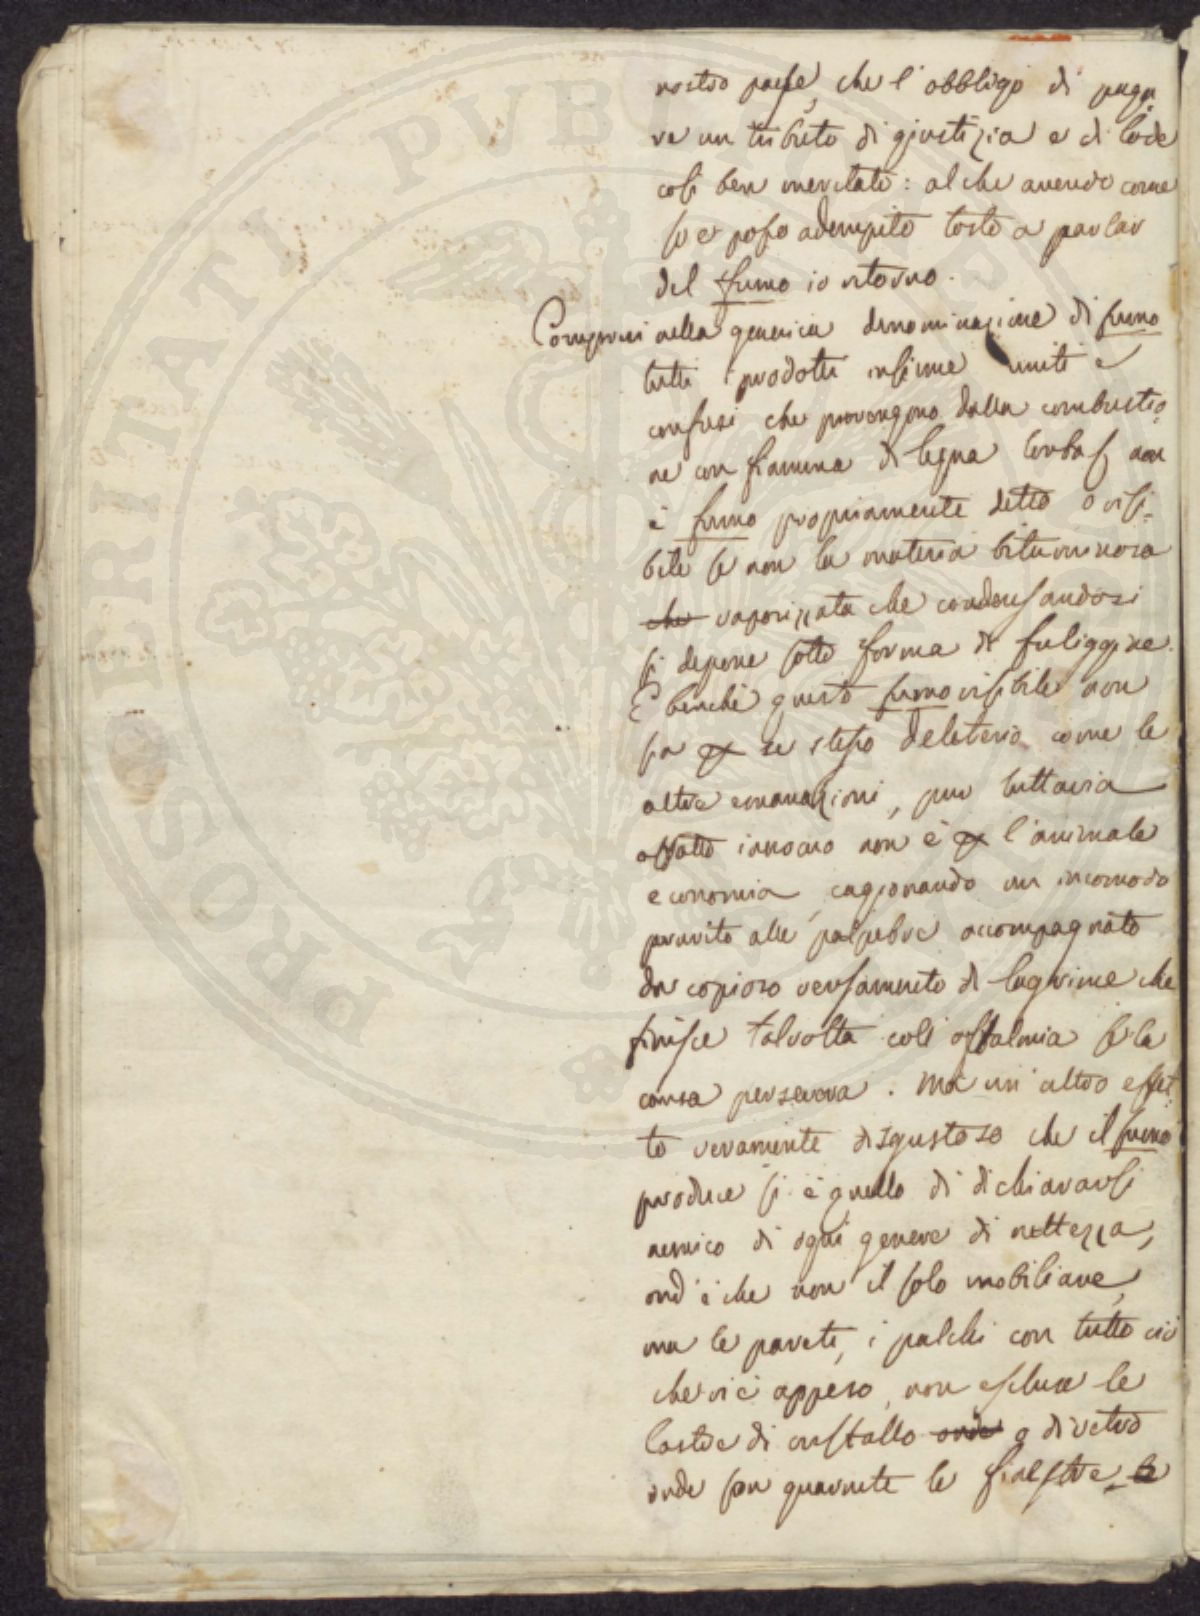 nostro paese, che l'obbligo di paga
re un tributo di giustizia e di lode
così ben meritato: al che avendo come
so e posso adempito tosto a parlar
del fumo io ritorno.
Compresi nella generica denominazione di fumo
tutti i prodotti insieme uniti e
confusi che provengono dalla combustio
ne con fiamma di legna torba non
è fumo propriamente detto o visi-
bile se non la materia bituminosa
che vaporizzata che condensandosi
si depone sotto forma di fuliggine.
E benchè questo fumo visibile non
sia per se stesso deleterio come le
altre emanazioni, pur tuttavia
affatto innocuo non è per l'animale
economia, cagionando un incomodo
prurito alle palpebre accompagnato
da copioso versamento di lagrime che
finisce talvolta coll'oftalmia se la
causa persevera. Ma un altro effet-
to veramente disgustoso che il fumo
produce si è quello di dichiararsi
nemico di ogni genere di nettezza,
ond'è che non il solo mobiliare,
ma le pareti, i palchi con tutto ciò
che vi è appeso, non escluse le
lastre di cristallo onde o di vetro
onde son guarnite le finestre le
PROSPERITATI PVBLICAE